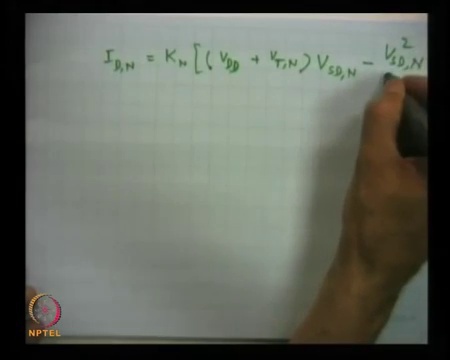 I_{D,N} = K_N [(V_{DD} + V_{T,N}) V_{SD,N} - V_{SD,N}^2
NPTEL